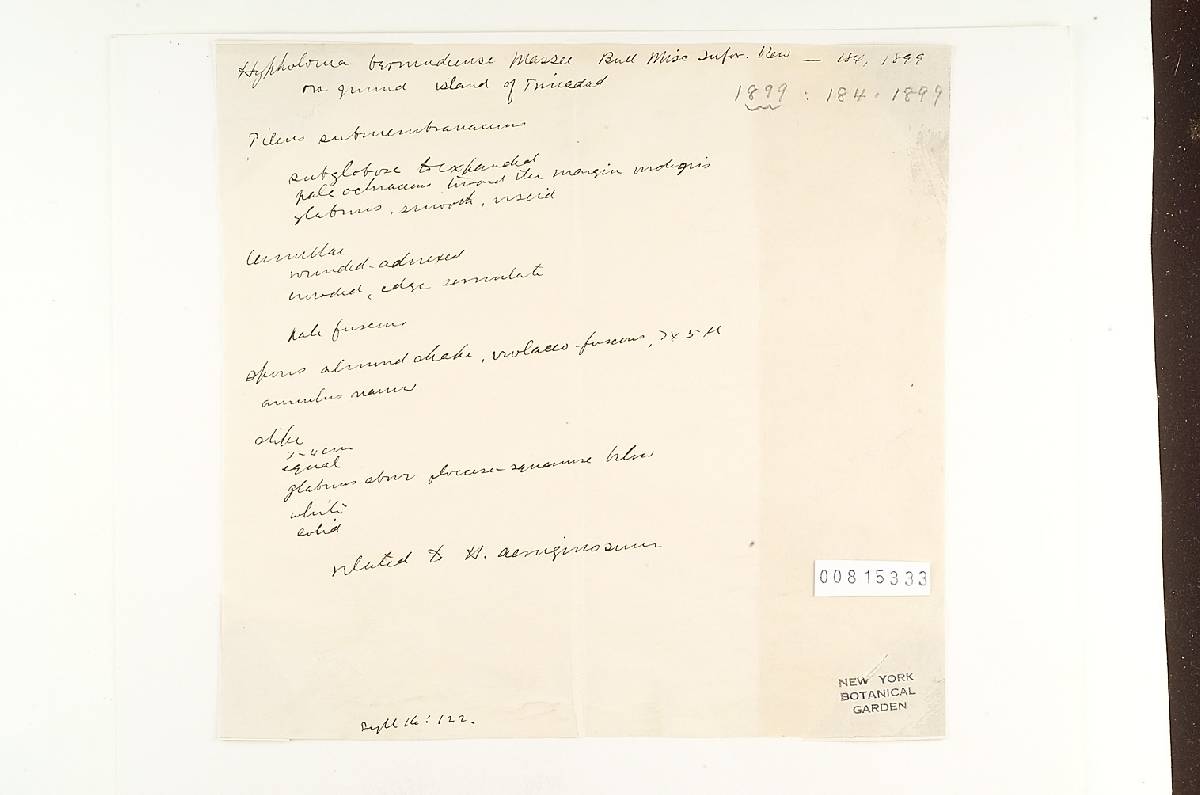 Hypholoma bermudiense Massee Bull Misc Infor. Kew — 184, 1899
on ground island of Trinidad
1899 : 184. 1899
Pileus submembranaceous
subglobose to expanded
pale ochraceous toward the margin
glabrous, smooth, viscid
Lamellae
rounded-adnexed
crowded, edge
pale fuscous
Spores almond shape, violaceo-fuscous, 7x5 µ
annulus narrow
stipe
equal
glabrous above floccose-squamose below
white
solid
related to H. aeruginosum
Syll 16:122.
00815333
NEW YORK
BOTANICAL
GARDEN